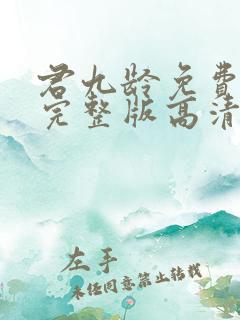 君九龄免费
完整版高清
左手
未经同意禁止转载